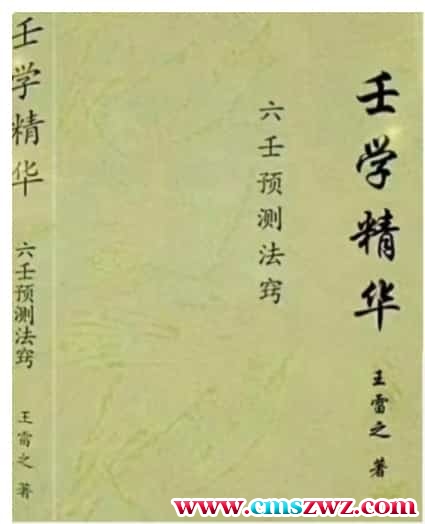 壬学精华
六壬预测法窍
王雷之 著
壬学精华
六壬预测法窍
王雷之 著
www.cmszwz.com